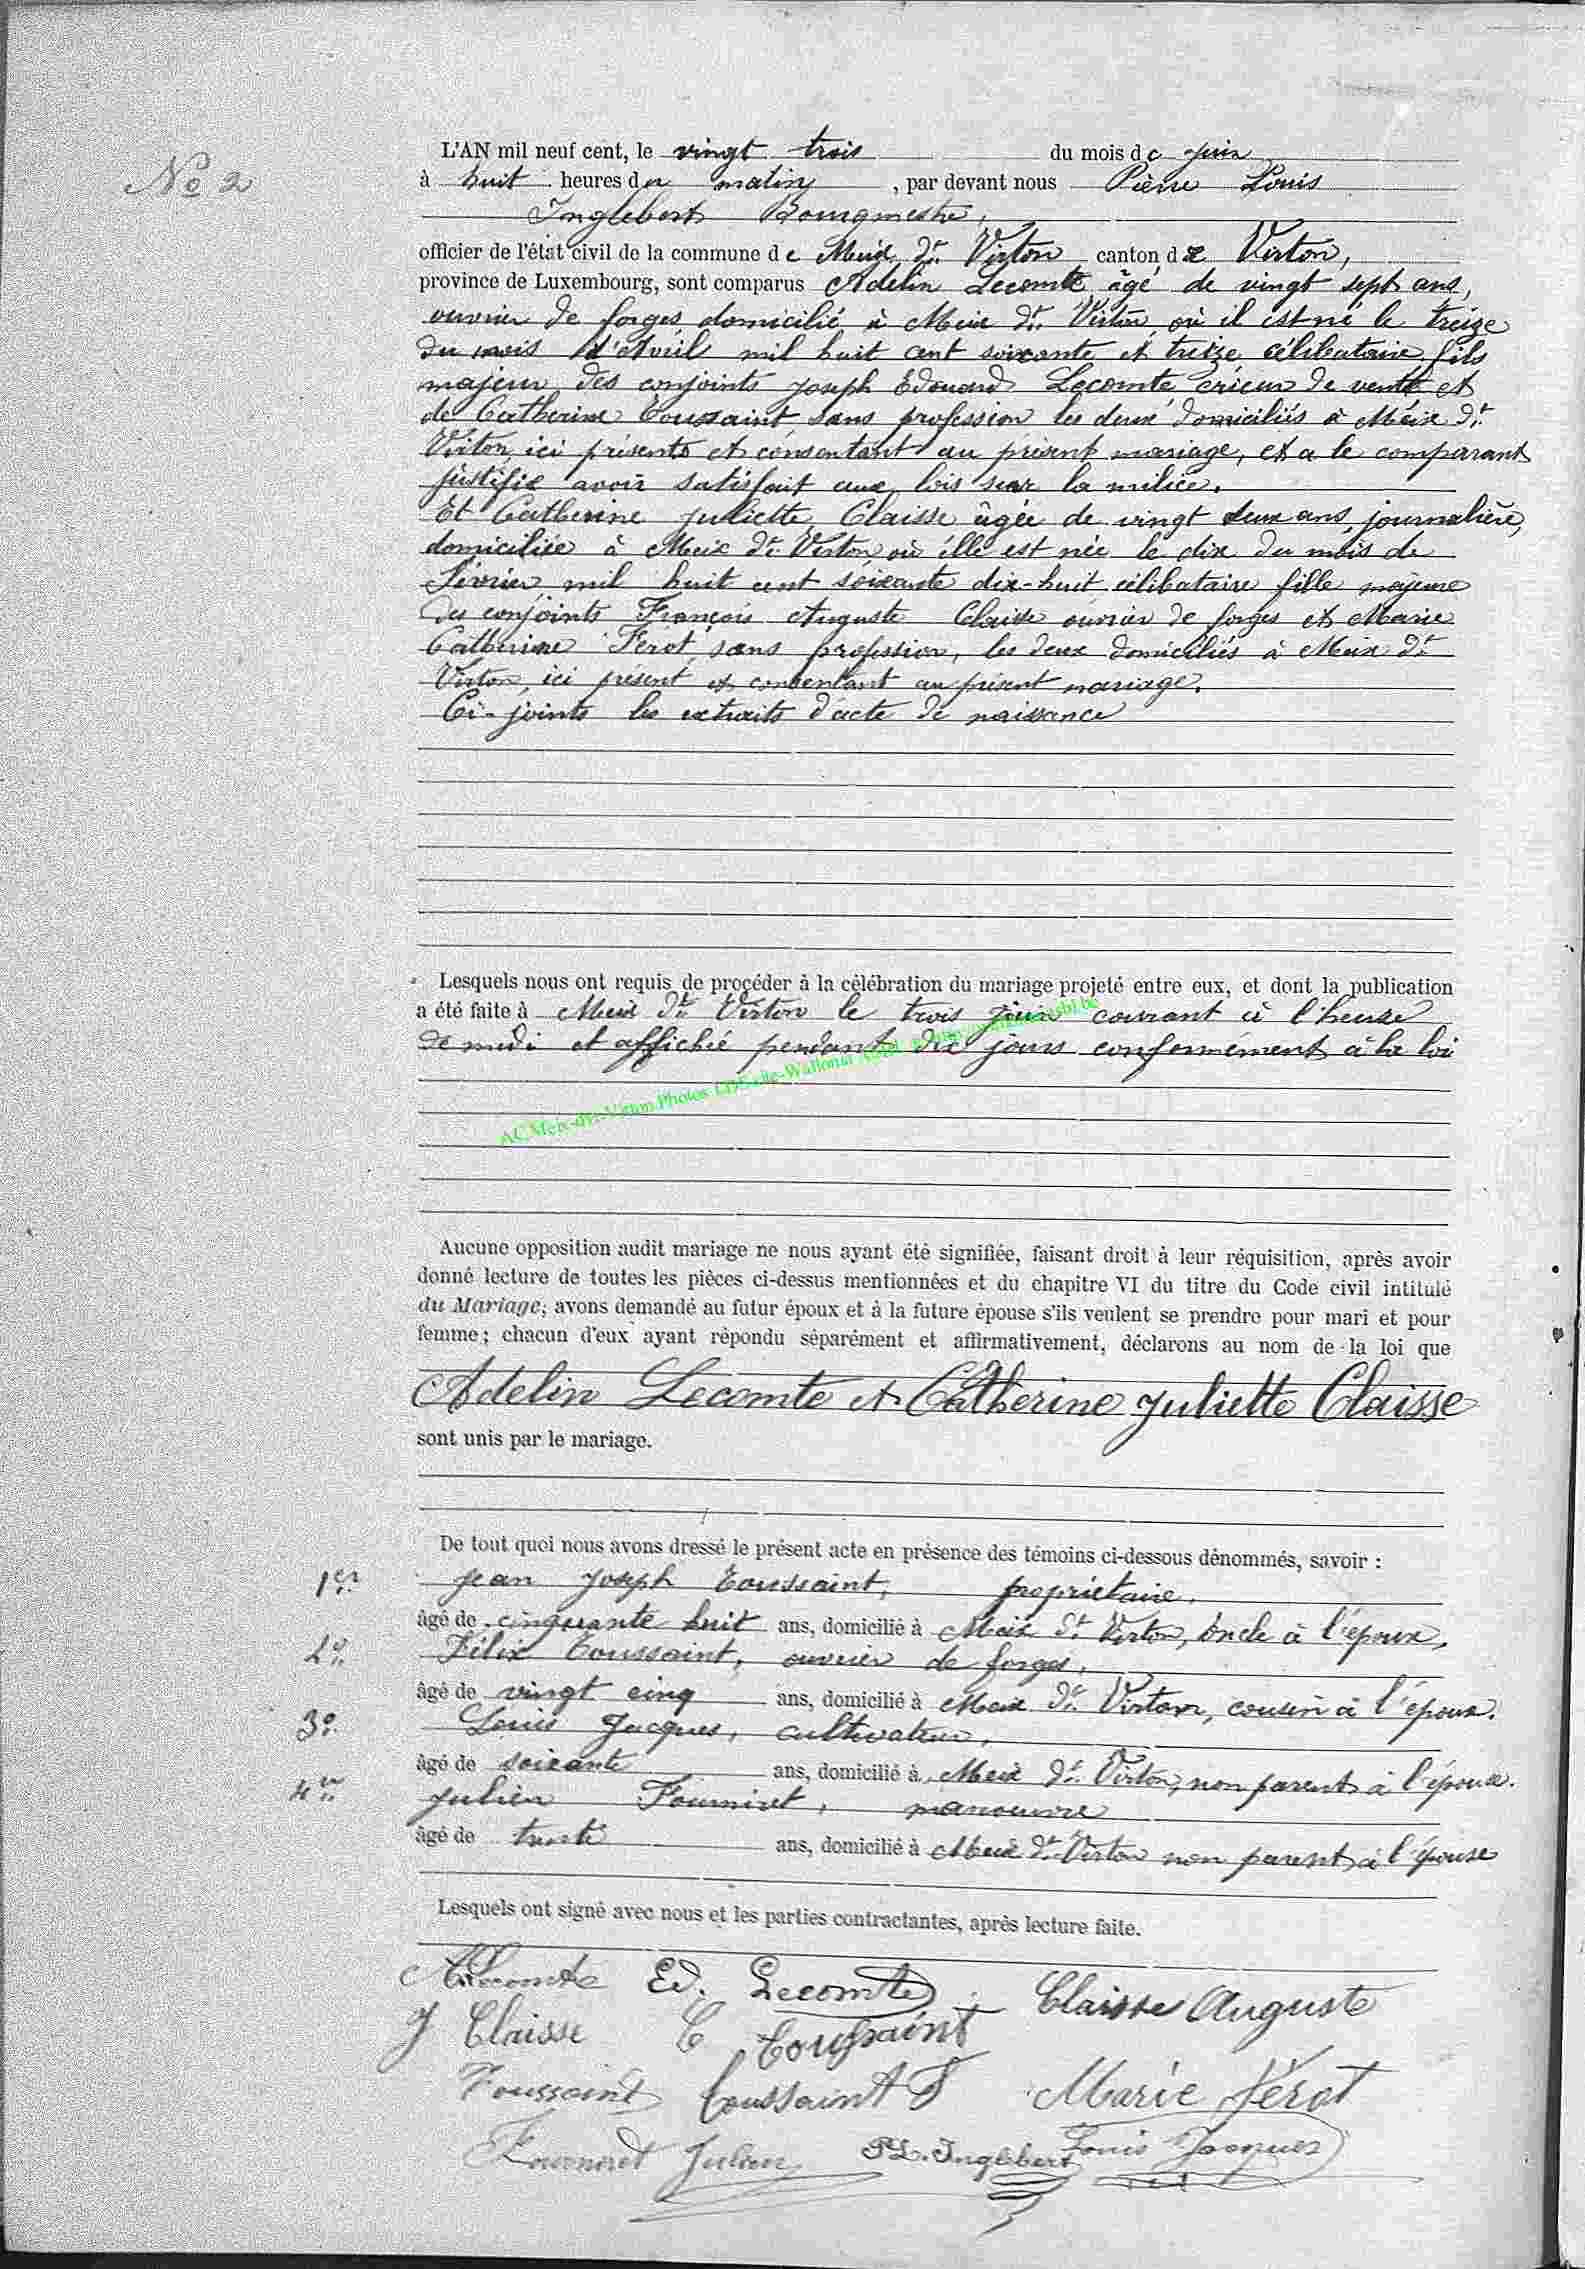 No 2
L'AN mil neuf cent, le vingt trois du mois de juin
à huit heures du matin, par devant nous Pierre Louis
Inglebert Bourgmestre,
officier de l'état civil de la commune de Meix dt. Virton canton de Virton,
province de Luxembourg, sont comparus Adelin Lecomte âgé de vingt sept ans,
ouvrier de forges domicilié à Meix dt. Virton, où il est né le treize
du mois d'Avril mil huit cent soixante et treize célibataire fils
majeur des conjoints Joseph Edouard Lecomte crieur de vente et
de Catherine Toussaint sans profession les deux domiciliés à Meix dt.
Virton, ici présents et consentant au présent mariage, et a le comparant
justifié avoir satisfait aux lois sur la milice.
Et Catherine Juliette Claisse âgée de vingt deux ans, journalière,
domiciliée à Meix dt. Virton où elle est née le dix du mois de
Février mil huit cent soixante dix-huit célibataire fille majeure
des conjoints François Auguste Claisse ouvrier de forges et Marie
Catherine Férot sans profession, les deux domiciliés à Meix dt
Virton, ici présent et consentant au présent mariage.
Ci-joints les extraits d'acte de naissance
Lesquels nous ont requis de procéder à la célébration du mariage projeté entre eux, et dont la publication
a été faite à Meix dt Virton le trois juin courant à l'heure
de midi et affichée pendant dix jours conformément à la loi
AC Meix-dvt-Virton Photos
Aucune opposition audit mariage ne nous ayant été signifiée, faisant droit à leur réquisition, après avoir
donné lecture de toutes les pièces ci-dessus mentionnées et du chapitre VI du titre du Code civil intitulé
du Mariage, avons demandé au futur époux et à la future épouse s'ils veulent se prendre pour mari et pour
femme ; chacun d'eux ayant répondu séparément et affirmativement, déclarons au nom de la loi que
Adelin Lecomte et Catherine Juliette Claisse
sont unis par le mariage.
De tout quoi nous avons dressé le présent acte en présence des témoins ci-dessous dénommés, savoir :
1er. Jean Joseph Toussaint, propriétaire,
âgé de cinquante huit ans, domicilié à Meix dt Virton, oncle à l'époux,
2o. Félix Toussaint, ouvrier de forges,
âgé de vingt cinq ans, domicilié à Meix dt. Virton, cousin à l'époux.
3o. Louis Jacques, cultivateur,
âgé de soixante ans, domicilié à Meix dt. Virton, non parent à l'époux.
4. Julien Fourniret, manoeuvre
âgé de trente ans, domicilié à Meix dt. Virton non parent à l'épouse
Lesquels ont signé avec nous et les parties contractantes, après lecture faite.
A Lecomte Ed. Lecomte Claisse Auguste
J Claisse C Toussaint
Toussaint Toussaint F Marie Férot
Fourniret Julien P L. Inglebert Louis Jacques